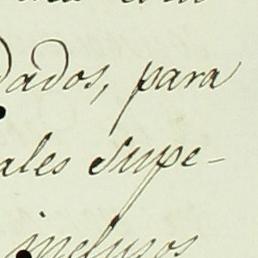 dados, para
ales Supe-
inclusos